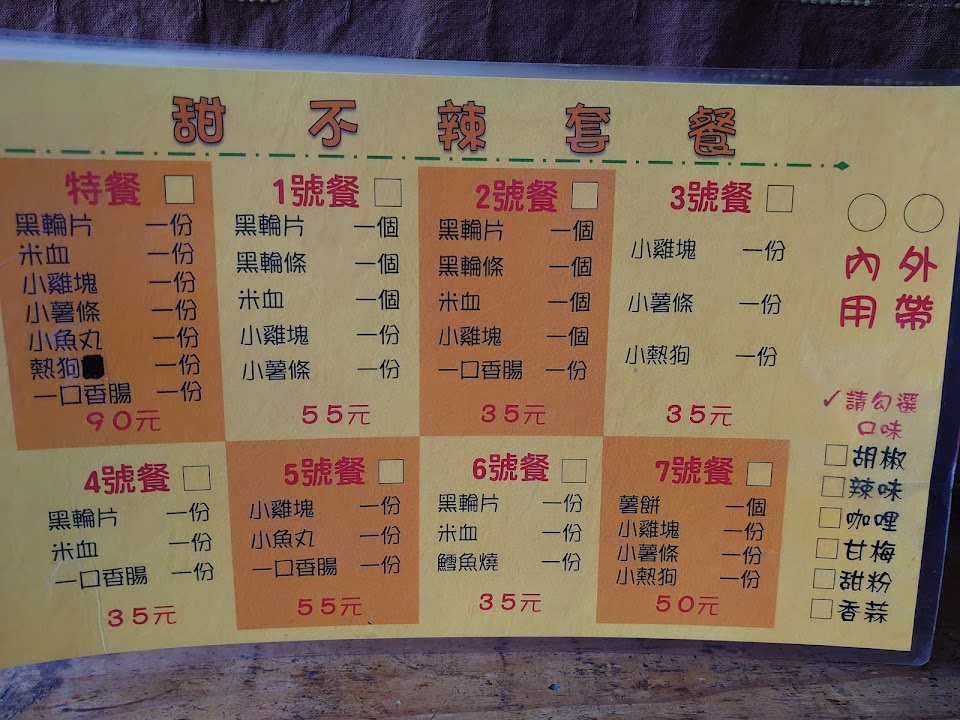 甜不辣套餐
特餐
黑輪片 一份
米血 一份
小雞塊 一份
小薯條 一份
小魚丸 一份
熱狗 一份
一口香腸 一份
90元
1號餐
黑輪片 一個
黑輪條 一個
米血 一個
小雞塊 一份
小薯條 一份
55元
2號餐
黑輪片 一個
黑輪條 一個
米血 一個
小雞塊 一個
一口香腸 一份
35元
3號餐
小雞塊 一份
小薯條 一份
小熱狗 一份
35元
4號餐
黑輪片 一份
米血 一份
一口香腸 一份
35元
5號餐
小雞塊 一份
小魚丸 一份
一口香腸 一份
55元
6號餐
黑輪片 一份
米血 一份
鱈魚燒 一份
35元
7號餐
薯餅 一個
小雞塊 一份
小薯條 一份
小熱狗 一份
50元
內用
外帶
✓請勾選
口味
胡椒
辣味
咖哩
甘梅
甜粉
香蒜